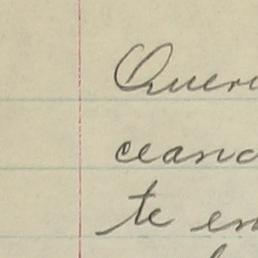 Queri
ceand
te en